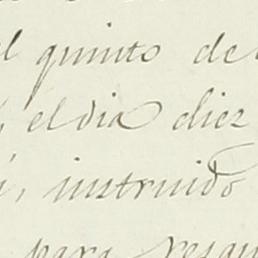 l quinto de
, el dia diez
í, instruido
para resgu